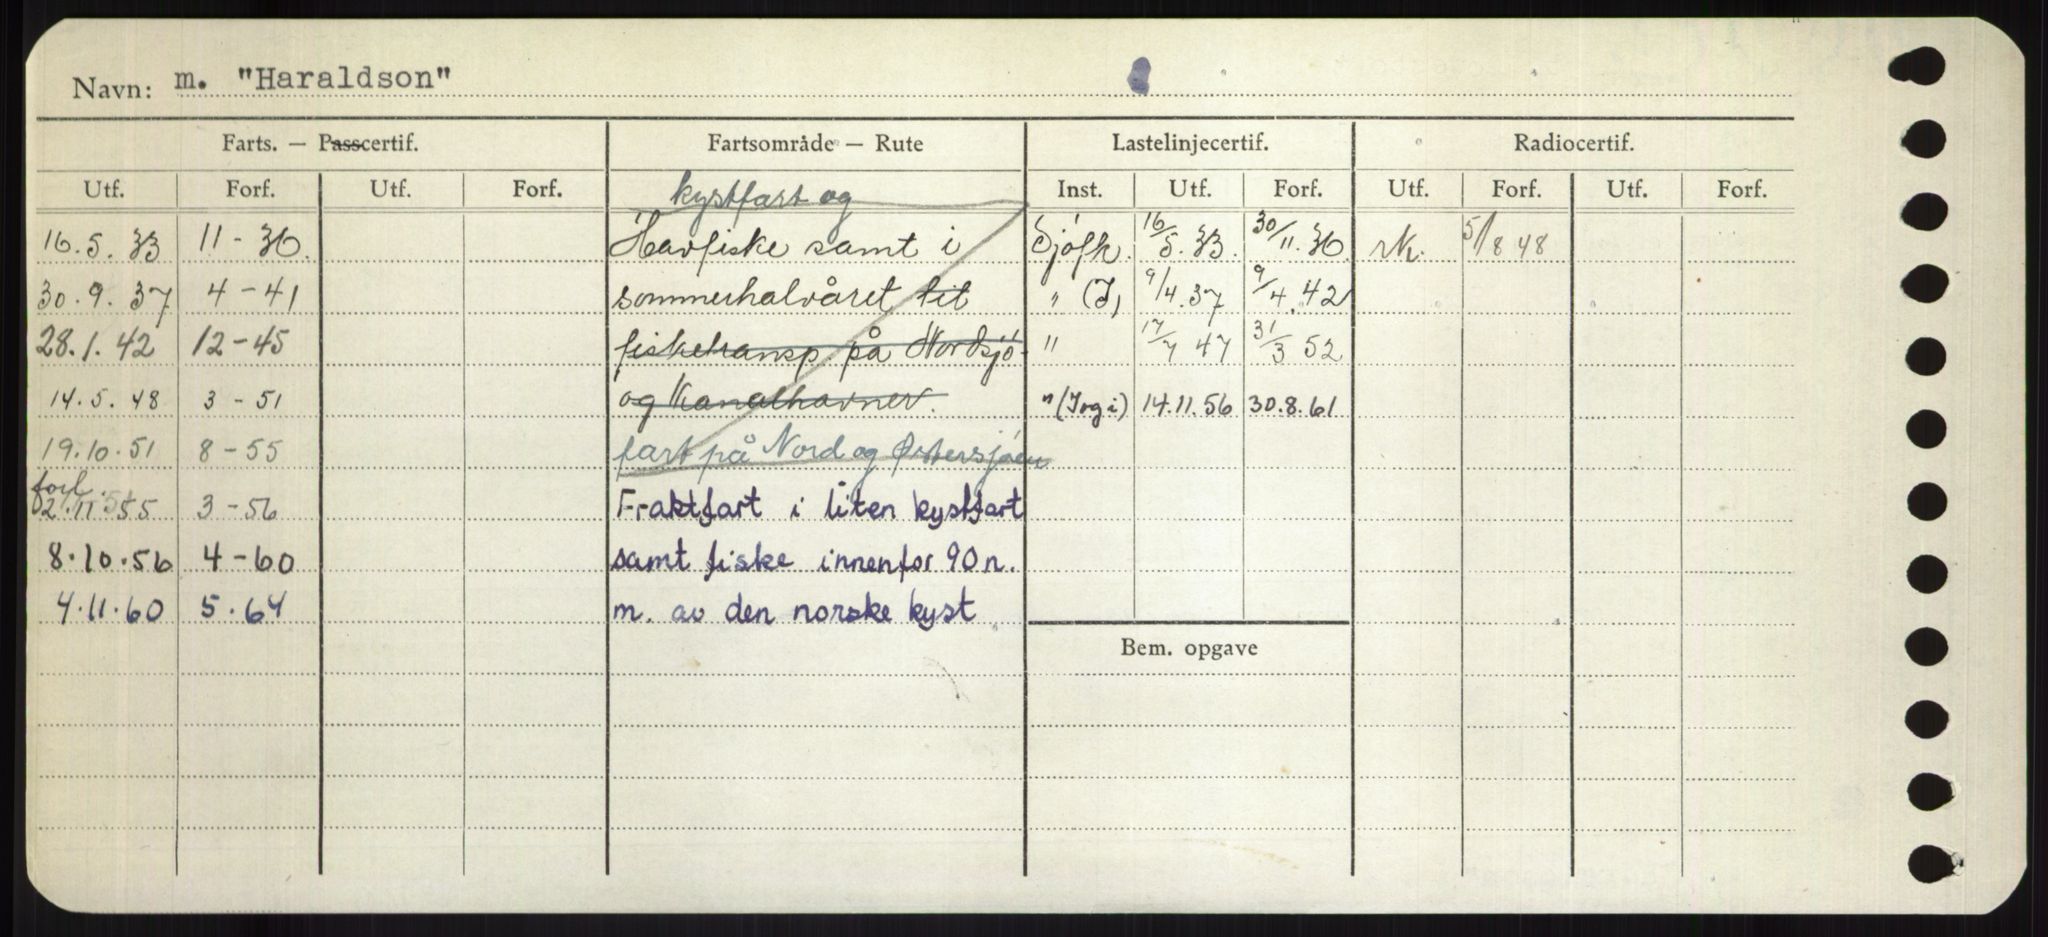 Navn: m. "Haraldson"
Farts. — Passcertif. Fartsområde — Rute Lastelinjecertif. Radiocertif.
Utf. Forf. Utf. Forf. kystfart og Inst. Utf. Forf. Utf. Forf. Utf. Forf.
16.5.33 11-36. Havfiske samt i Sjøfk. 16/5.33. 30/11.36 rk. 5/8 48
30.9.37 4-41 sommerhalvåret til " (I) 9/4.37 9/4.42
28.1.42 12-45 fisketransp. på Nordsjö- " 17/7 47 31/3 52
14.5.48 3-51 og Kanalhavner. " (I og i) 14.11.56 30.8.61
19.10.51 8-55 fart på Nord og Østersjøen
forl.
2.11.55 3-56 Fraktfart i liten kystfart
8.10.56 4-60 samt fiske innenfor 90 n.
4.11.60 5.64 m. av den norske kyst
Bem. opgave